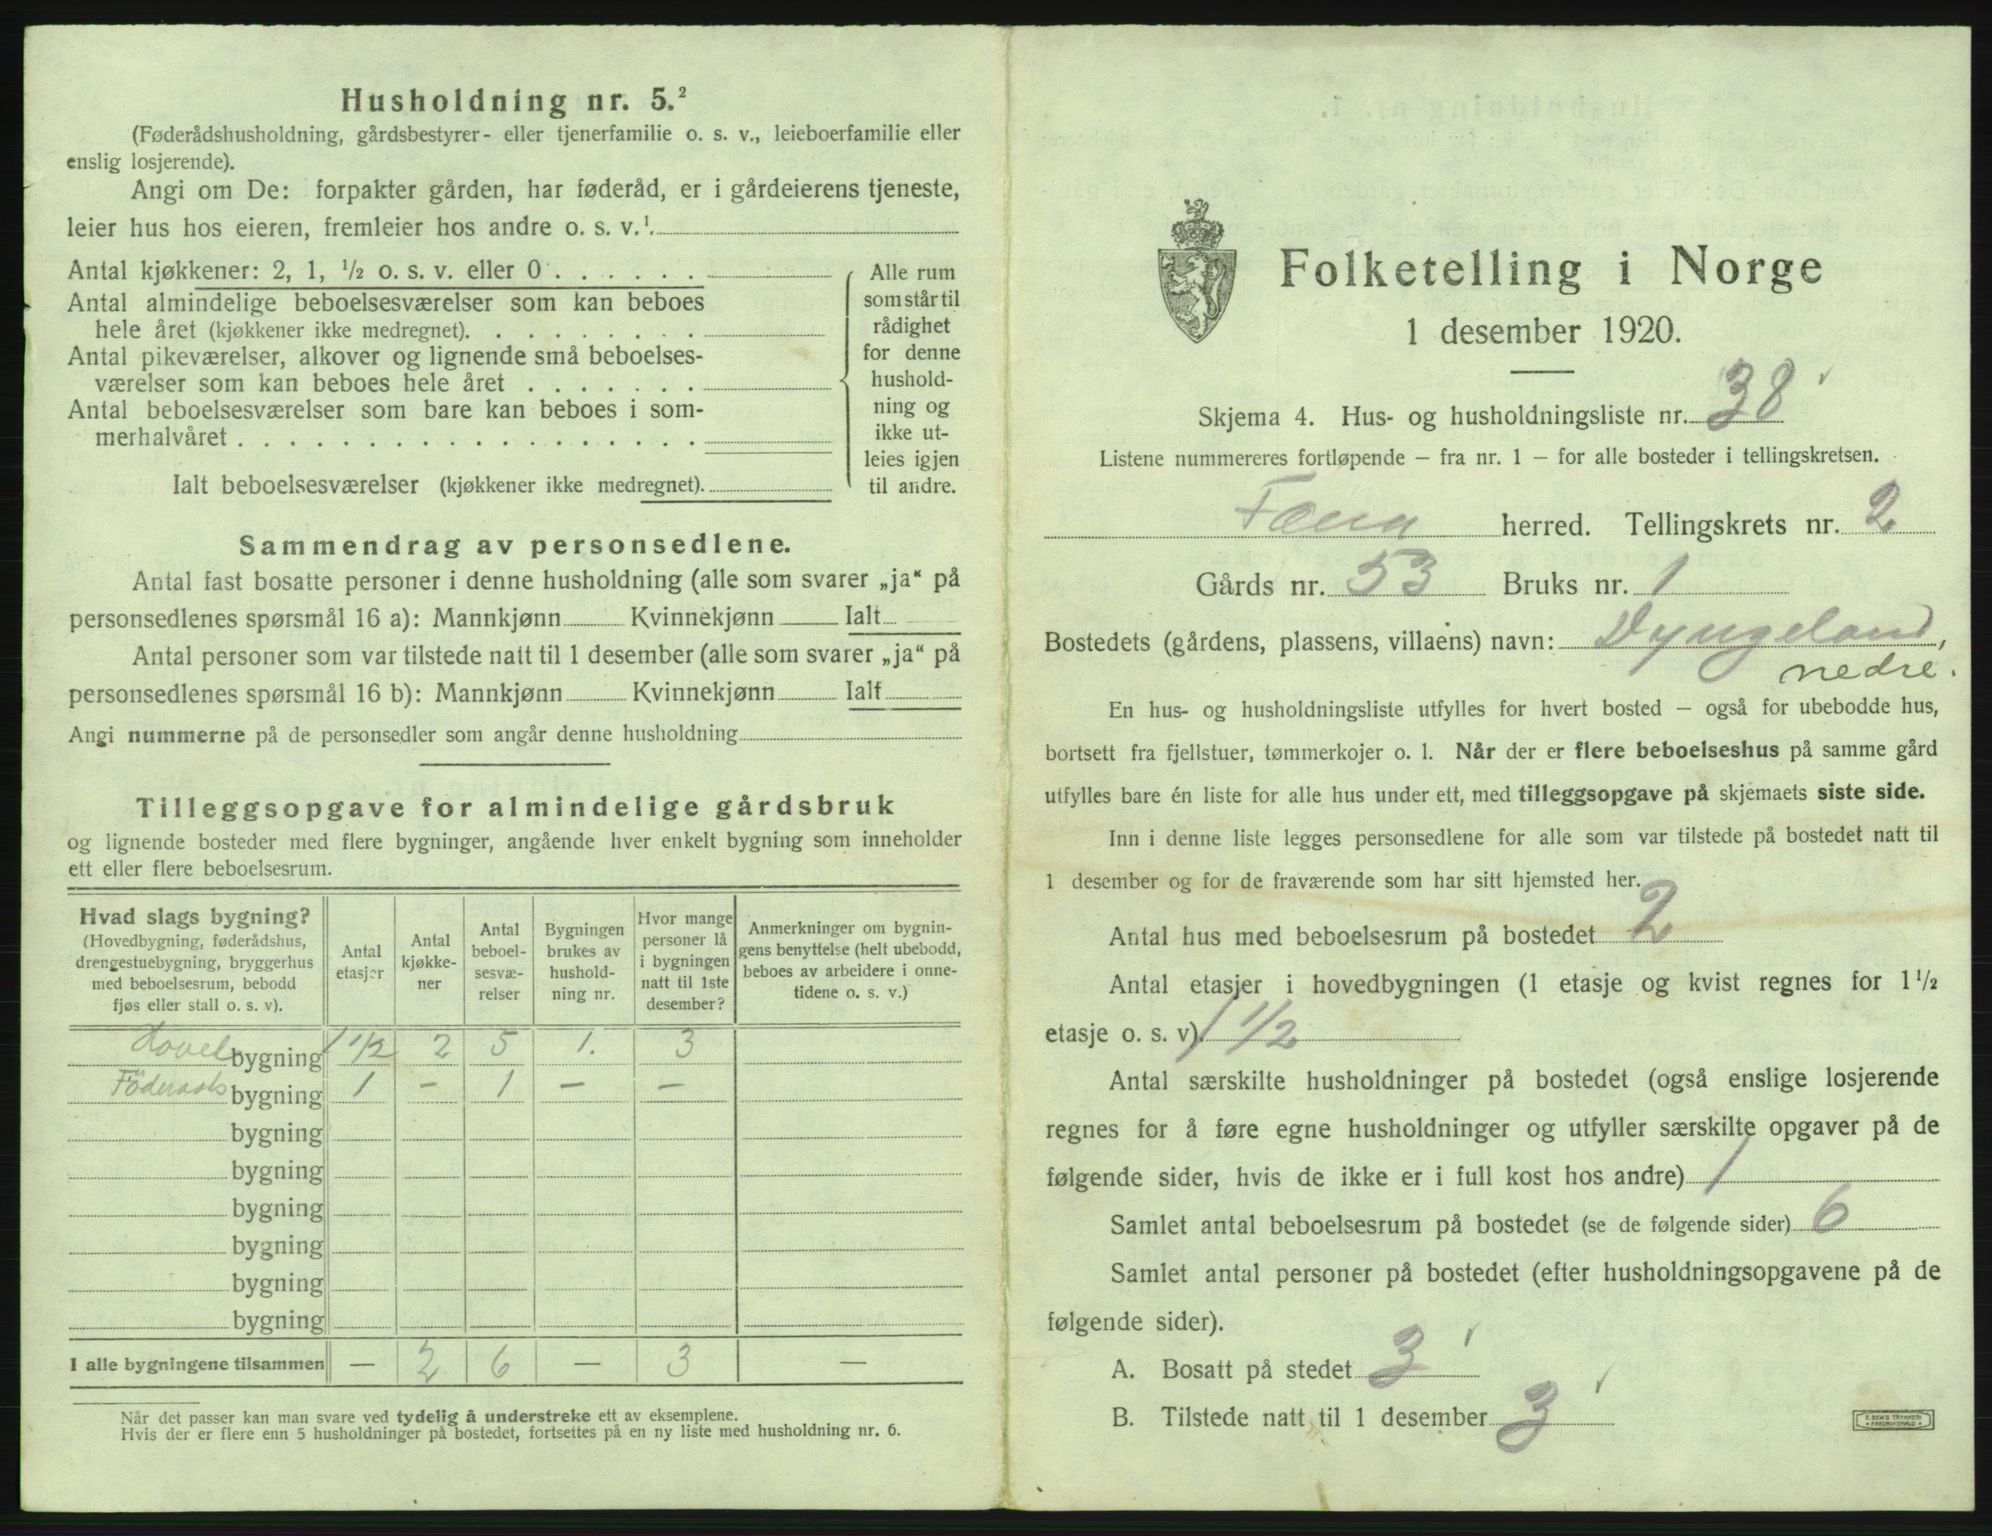 Husholdning nr. 5.²
(Føderådshusholdning, gårdsbestyrer- eller tjenerfamilie o. s. v., leieboerfamilie eller
enslig losjerende).
Angi om De: forpakter gården, har føderåd, er i gårdeierens tjeneste,
leier hus hos eieren, fremleier hos andre o. s. v.¹.
Antal kjøkkener: 2, 1, ½ o. s. v. eller 0 . . . . . .
Antal almindelige beboelsesværelser som kan beboes
hele året (kjøkkener ikke medregnet). . . . . . . . .
Antal pikeværelser, alkover og lignende små beboelses-
værelser som kan beboes hele året . . . . . . .
Antal beboelsesværelser som bare kan beboes i som-
merhalvåret . . . . . . . . . . . . . . . . . .
Ialt beboelsesværelser (kjøkkener ikke medregnet).
Alle rum
som står til
rådighet
for denne
hushold-
ning og
ikke ut-
leies igjen
til andre.
Sammendrag av personsedlene.
Antal fast bosatte personer i denne husholdning (alle som svarer „ja“ på
personsedlenes spørsmål 16 a): Mannkjønn Kvinnekjønn Ialt
Antal personer som var tilstede natt til 1 desember (alle som svarer „ja“ på
personsedlenes spørsmål 16 b): Mannkjønn Kvinnekjønn Ialt
Angi nummerne på de personsedler som angår denne husholdning
Tilleggsopgave for almindelige gårdsbruk
og lignende bosteder med flere bygninger, angående hver enkelt bygning som inneholder
ett eller flere beboelsesrum.
Hvad slags bygning?
(Hovedbygning, føderådshus,
drengestuebygning, bryggerhus
med beboelsesrum, bebodd
fjøs eller stall o. s. v).
Antal
etasjer
Antal
kjøkke-
ner
Antal
beboel-
sesvæ-
relser
Bygningen
brukes av
hushold-
ning nr.
Hvor mange
personer lå
i bygningen
natt til 1ste
desember?
Anmerkninger om bygnin-
gens benyttelse (helt ubebodd,
beboes av arbeidere i onne-
tidene o. s. v.)
Hovel bygning 1 1/2 2 5 1. 3
Föderaads bygning 1 – 1 – –
bygning
bygning
bygning
bygning
bygning
bygning
I alle bygningene tilsammen — 2 6 — 3 —
Når det passer kan man svare ved tydelig å understreke ett av eksemplene.
Hvis der er flere enn 5 husholdninger på bostedet, fortsettes på en ny liste med husholdning nr. 6.
Folketelling i Norge
1 desember 1920.
Skjema 4. Hus- og husholdningsliste nr. 38
Listene nummereres fortløpende – fra nr. 1 – for alle bosteder i tellingskretsen.
Fana herred. Tellingskrets nr. 2
Gårds nr. 53 Bruks nr. 1
Bostedets (gårdens, plassens, villaens) navn: Dyngeland,
nedre.
En hus- og husholdningsliste utfylles for hvert bosted – også for ubebodde hus,
bortsett fra fjellstuer, tømmerkojer o. l. Når der er flere beboelseshus på samme gård
utfylles bare én liste for alle hus under ett, med tilleggsopgave på skjemaets siste side.
Inn i denne liste legges personsedlene for alle som var tilstede på bostedet natt til
1 desember og for de fraværende som har sitt hjemsted her.
Antal hus med beboelsesrum på bostedet 2
Antal etasjer i hovedbygningen (1 etasje og kvist regnes for 1½
etasje o. s. v). 1 1/2
Antal særskilte husholdninger på bostedet (også enslige losjerende
regnes for å føre egne husholdninger og utfyller særskilte opgaver på de
følgende sider, hvis de ikke er i full kost hos andre) 1
Samlet antal beboelsesrum på bostedet (se de følgende sider) 6
Samlet antal personer på bostedet (efter husholdningsopgavene på de
følgende sider).
A. Bosatt på stedet 3
B. Tilstede natt til 1 desember 3